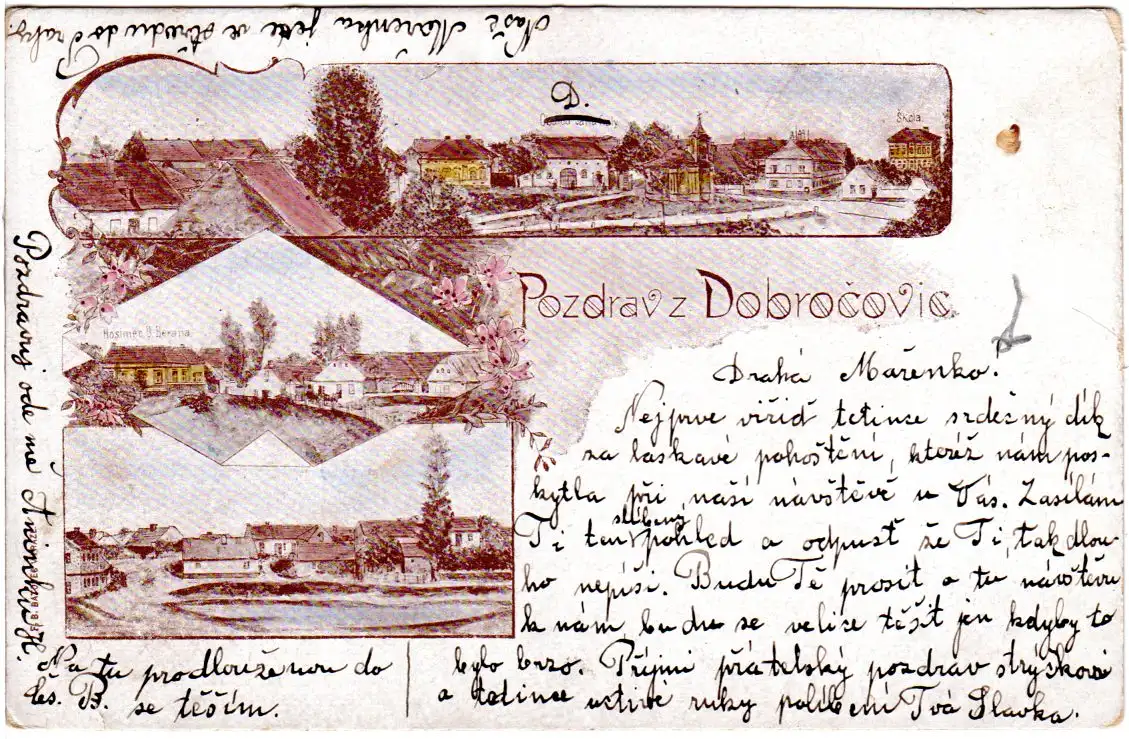 Naše Mařenka jede ve středu do Prahy.
D.
Škola.
Hostinec J. Berana
Pozdrav z Dobročovic
Drahá Mařenko!
Nejprve viřiď tetince srdečný dík
za laskavé pohoštění, kteréž nám pos-
kytla při naší návštěvě u Vás. Zasílám
slíbený
Ti ten pohled a odpusť že Ti tak dlou-
ho nepíši. Budu Tě prosit o tu návštěvu
k nám budu se velice těšit jen kdyby to
bylo brzo. Přijmi přátelský pozdrav strýčkovi
a tetince uctivé ruky políbení Tvá Slavka.
Pozdravuj ode mě
Na tu prodlouženou do
čes. B.
se těším.